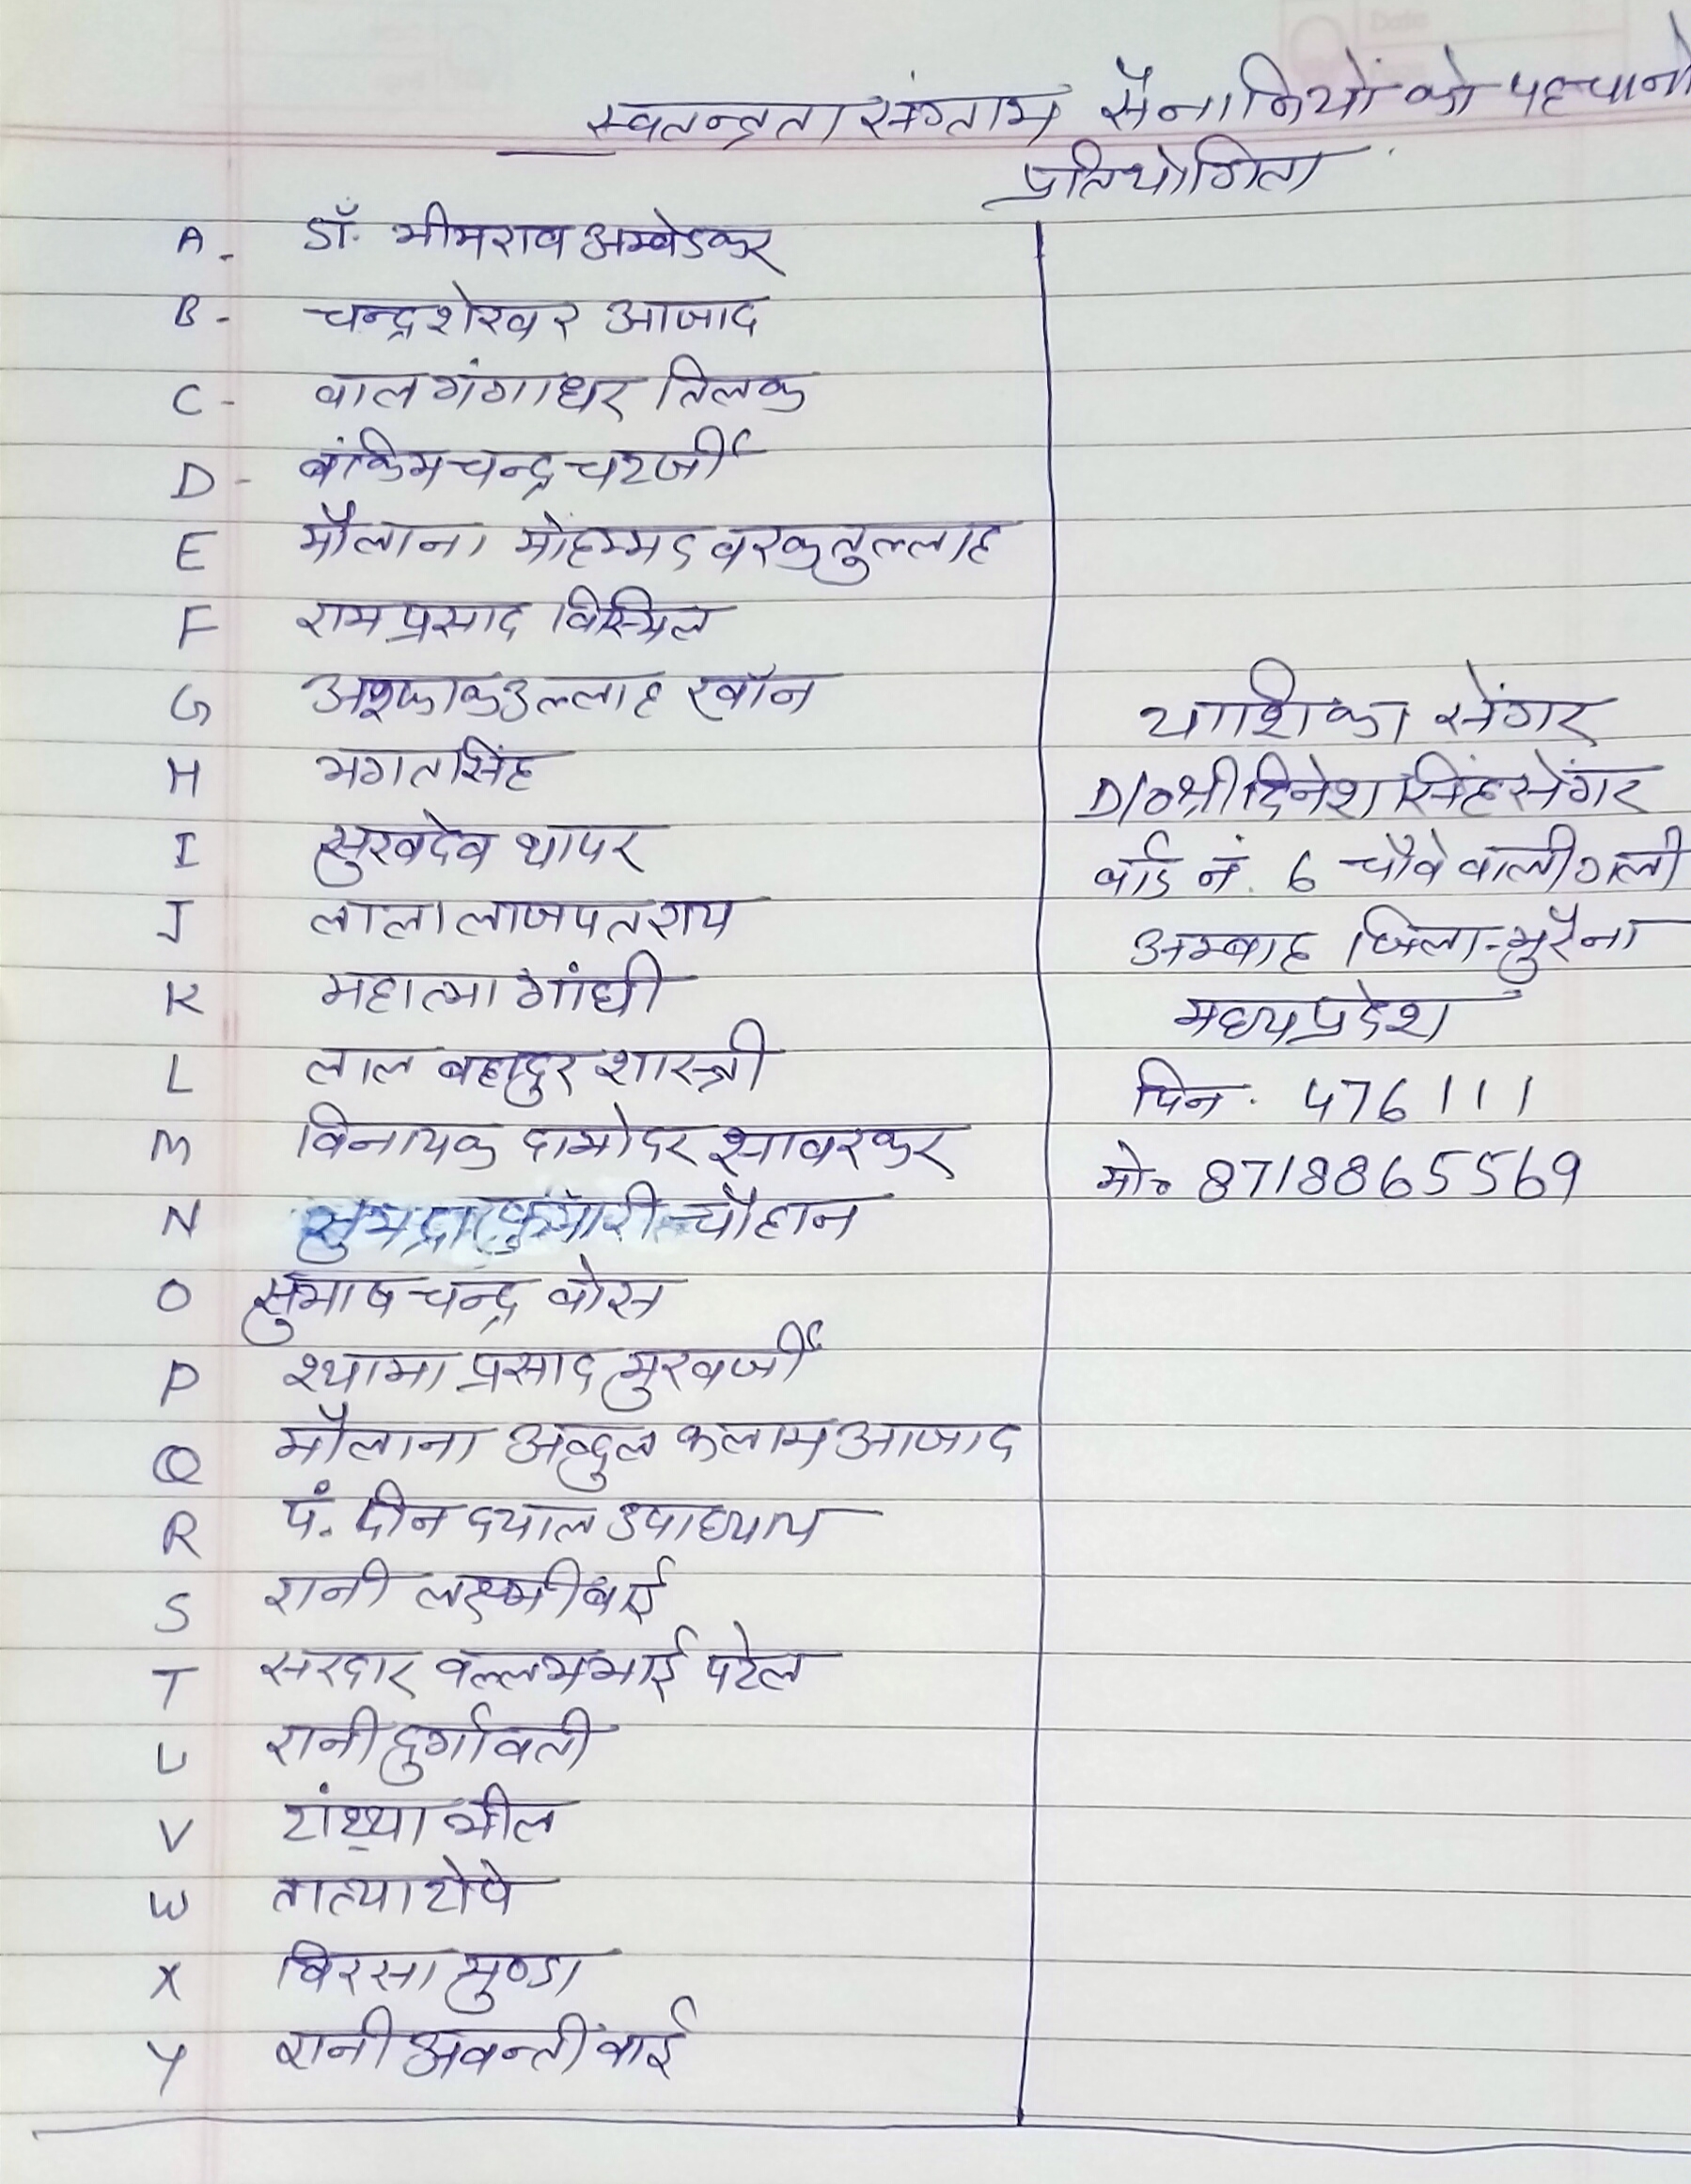 स्वतन्त्रता संग्राम सैनानियों को पहचानो
प्रतियोगिता
A. डॉ. भीमराव अम्बेडकर
B - चन्द्रशेखर आजाद
C - बाल गंगाधर तिलक
D - बंकिम चन्द्र चटर्जी
E मौलाना मोहम्मद बरकतुल्लाह
F राम प्रसाद बिस्मिल
G अश्फाक उल्लाह खॉन
H भगत सिंह
I सुखदेव थापर
J लाला लाजपत राय
K महात्मा गांधी
L लाल बहादुर शास्त्री
M विनायक दामोदर सावरकर
N सुभद्रा कुमारी चौहान
O सुभाष चन्द्र बोस
P श्यामा प्रसाद मुखर्जी
Q मौलाना अब्दुल कलाम आजाद
R पं. दीन दयाल उपाध्याय
S रानी लक्ष्मीबाई
T सरदार वल्लभभाई पटेल
U रानी दुर्गावती
V टांथ्या भील
W तात्या टोपे
X बिरसा मुण्डा
Y रानी अवन्तीबाई
याशिका सेंगर
D/o श्री दिनेश सिंह सेंगर
वार्ड नं. 6 चौबे वाली गली
अम्बाह जिला-मुरैना
मध्य प्रदेश
पिन. 476111
मो० 8718865569